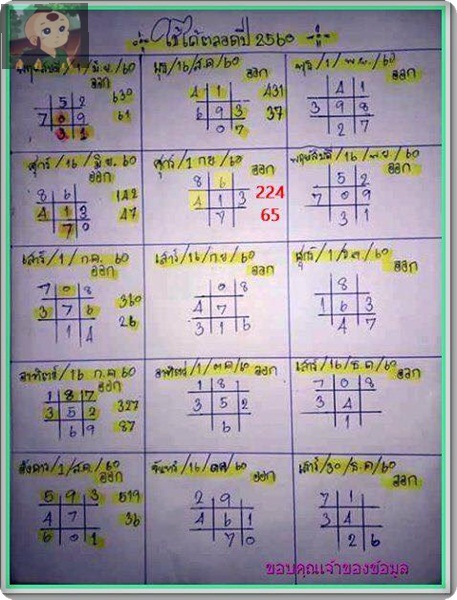 ใช้ได้ตลอดปี 2560
พฤหัสบดี/1/มิ.ย/60
ออก
5 2
630
7 0 9
61
3 1
ศุกร์/16/มิ.ย/60
ออก
8 6
142
4 1 3
47
7 0
เสาร์/1/ก.ค. 60
ออก
7 0 8
360
3 7 6
26
1 4
อาทิตย์/16 ก.ค 60
ออก
1 8 7
3 5 2
327
6 9
87
อังคาร/1/ส.ค/60
ออก
5 9 3
519
4 7
36
6 0 1
พุธ/16/ส.ค/60
ออก
4 1
431
6 9 3
37
0 7
ศุกร์/1 ก.ย/60
ออก
8 6
224
4 1 3
65
7
เสาร์/16/ก.ย/60
ออก
0 8
4 7
3 1 6
อาทิตย์/1/ต.ค/60
ออก
1 8
3 5 2
6
จันทร์/16/ต.ค/60
ออก
2 9
4 6 1
7 0
พุธ/1/พ.ย/60
ออก
4 1
3 9 8
2 7
พฤหัสบดี/16/พ.ย/60
ออก
5 2
7 0 9
3 1
ศุกร์/1/ธ.ค/60
ออก
8
1 6 3
4 7
เสาร์/16/ธ.ค/60
ออก
7 0 8
3 4
1
เสาร์/30/ธ.ค/60
ออก
7 1
3 4
2 6
ขอบคุณเจ้าของข้อมูล